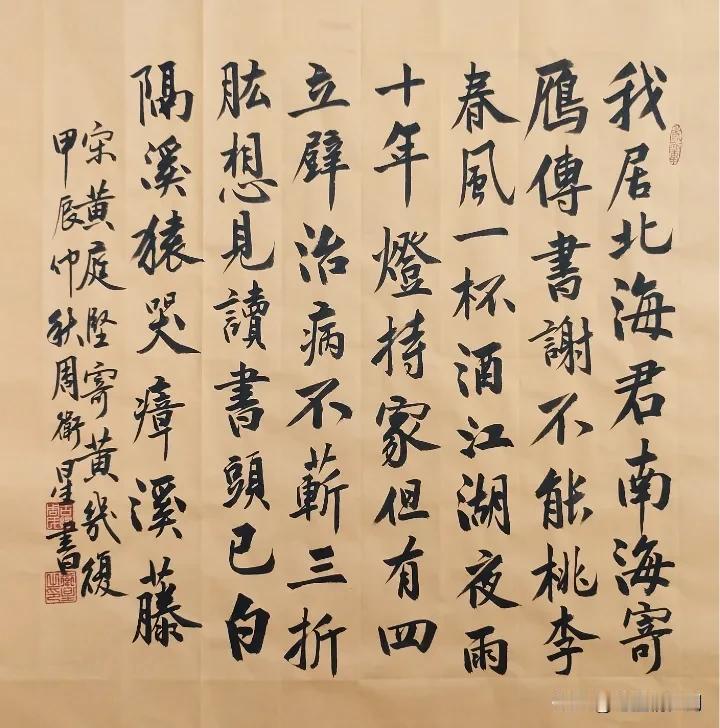 我居北海君南海寄
鴈傳書謝不能桃李
春風一杯酒江湖夜雨
十年燈持家但有四
立壁治病不蘄三折
肱想見讀書頭已白
隔溪猿哭瘴溪藤
宋黄庭堅寄黄幾復
甲辰仲秋周衛星書